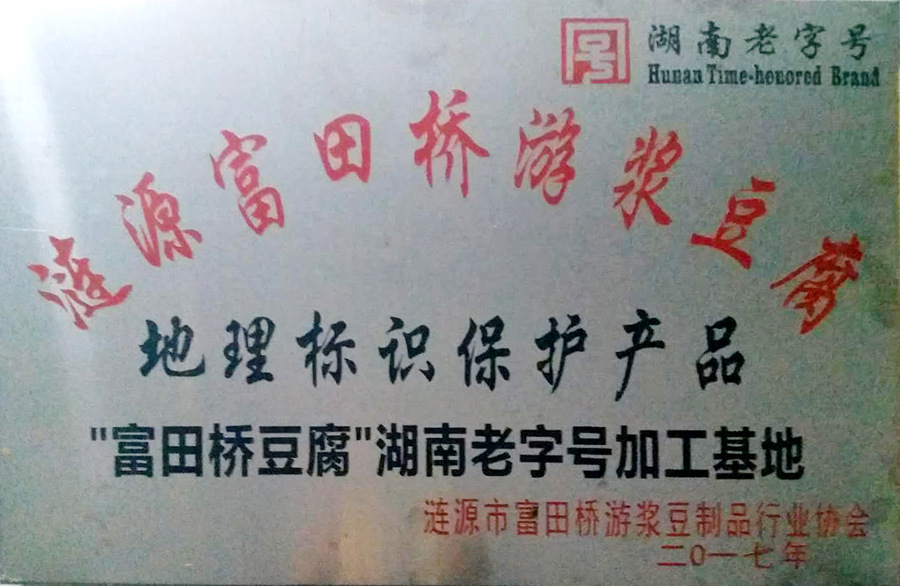 湖南老字号
Hunan Time-honored Brand
涟源富田桥游浆豆腐
地理标识保护产品
"富田桥豆腐"湖南老字号加工基地
涟源市富田桥游浆豆制品行业协会
二0一七年